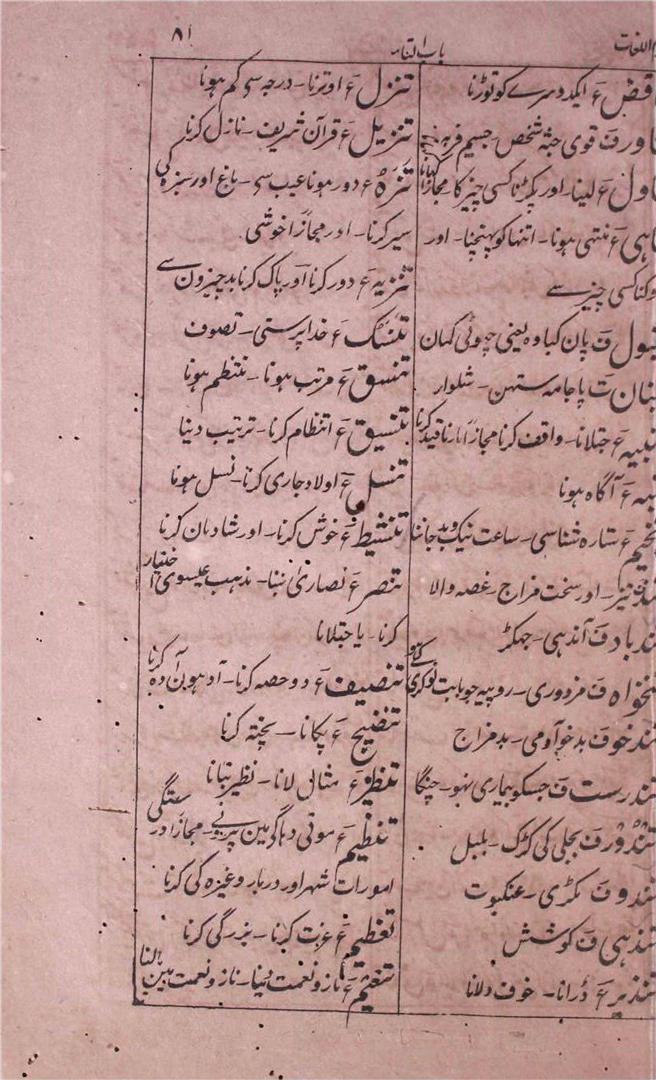 اللغات
باب التاء
۸۱
قض ع ایک دوسرے کو توڑنا
اور ف قوی جثہ شخص - جسیم فربہ
اول ع لینا - اور پکڑنا کسی چیز کا مجازاً کھانا
اہی ع منتہی ہونا - انتہا کو پہنچنا - اور
کنا کسی چیز سے
نبول ف پان کھاوہ یعنی چھوٹی کمان
نبان ت پاجامہ ستھن - شلوار
نبیہ ع جتلانا - واقف کرنا مجازاً مارنا قید کرنا
نبہ ع آگاہ ہونا
نجیم ع ستارہ شناسی - ساعت نیک و بد جاننا
تند تیز - اور سخت مزاج - غصہ والا
ندباد ف آندہی - جھکڑ
نخواہ ف مزدوری - روپیہ جو بابت نوکری کے ہو
تندخو ف بدخو آدمی - بد مزاج
تندرست ف جسکو بیماری نہو - چنگا
تندور ف بجلی کی کڑک - بلبل
تندو ف مکڑی - عنکبوت
تندہی ف کوشش
تنذیر ع ڈرانا - خوف دلانا
تنزل ع اوترنا - درجہ سے کم ہونا
تنزیل ع قرآن شریف - نازل کرنا
تنزہ ع دور ہونا عیب سے - باغ اور سبزہ کی
سیر کرنا - اور مجازاً خوشی
تنزیہ ع دور کرنا اور پاک کرنا بد چیزون سے
تنسک ع خدا پرستی - تصوف
تنسق ع مرتب ہونا - منتظم ہونا
تنسیق ع انتظام کرنا - ترتیب دینا
تنسل ع اولاد جاری کرنا - نسل ہونا
تنشیط ع خوش کرنا - اور شادمان کرنا
تنصر ع نصاریٰ بننا - مذہب عیسوی اختیار
کرنا - یا جتلانا
تنصیف ع دو حصہ کرنا - آدھون آدہ کرنا
تنضیج ع پکانا - پختہ کرنا
تنظیر ع مثال لانا - نظیر بتانا
تنظیم ع موتی دہاگے مین پرونے - مجازاً درستگی
امورات شہر اور دربار وغیرہ کی کرنا
تعظیم ع عزت کرنا - بزرگی کرنا
تنعیم ع ناز و نعمت دینا - ناز و نعمت مین پالنا